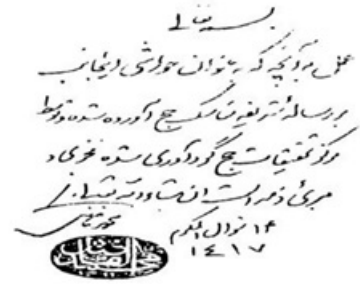 بسمه تعالی
عمل به آنچه که به عنوان حواشی اینجانب
بر رساله شریفه مناسک حج آورده شده و توسط
مرکز تحقیقات حج گردآوری شده مجزی و
مبرئ ذمه است ان شاء الله تعالی
۱۴ شوال المکرم
۱٤۱۷